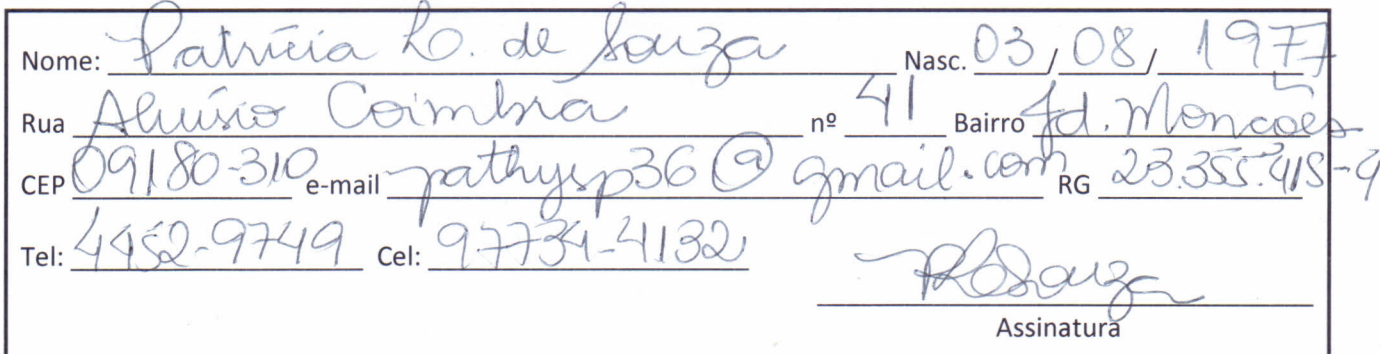 Nome: Patrícia L. de Souza Nasc. 03 / 08 / 1977
Rua Aluísio Coimbra nº 41 Bairro Jd. Monções
CEP 09180-310 e-mail pathysp36@gmail.com RG 23.355.415-9
Tel: 4452-9749 Cel: 97734-4132
Assinatura